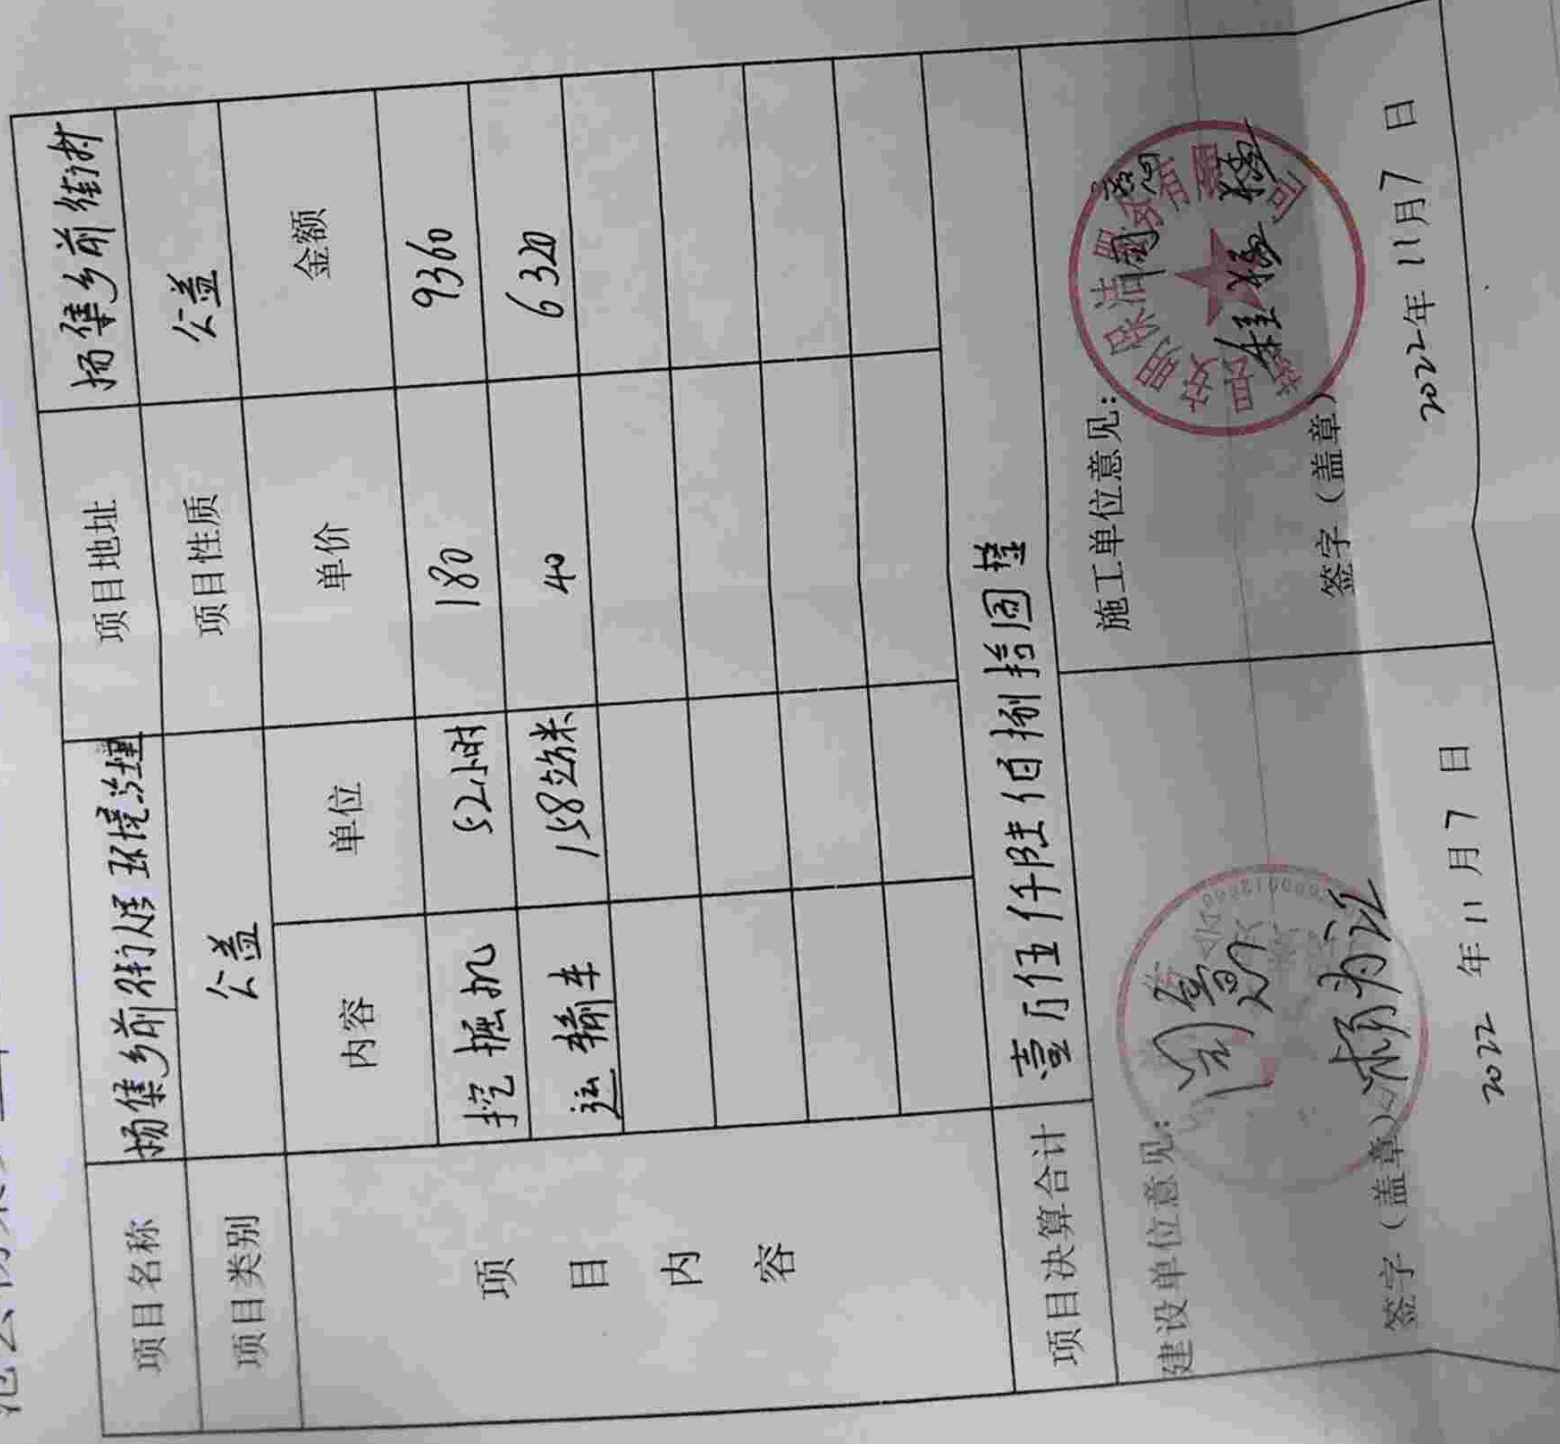 项目名称 杨集乡前街人居环境治理 项目地址 杨集乡前街村
项目类别 公益 项目性质 公益
项目内容 内容 单位 单价 金额
挖掘机 52小时 180 9360
运输车 158立方米 40 6320
项目决算合计 壹万伍仟陆佰捌拾圆整
建设单位意见: 施工单位意见:
签字(盖章) 签字(盖章)
2022年11月7日 2022年11月7日